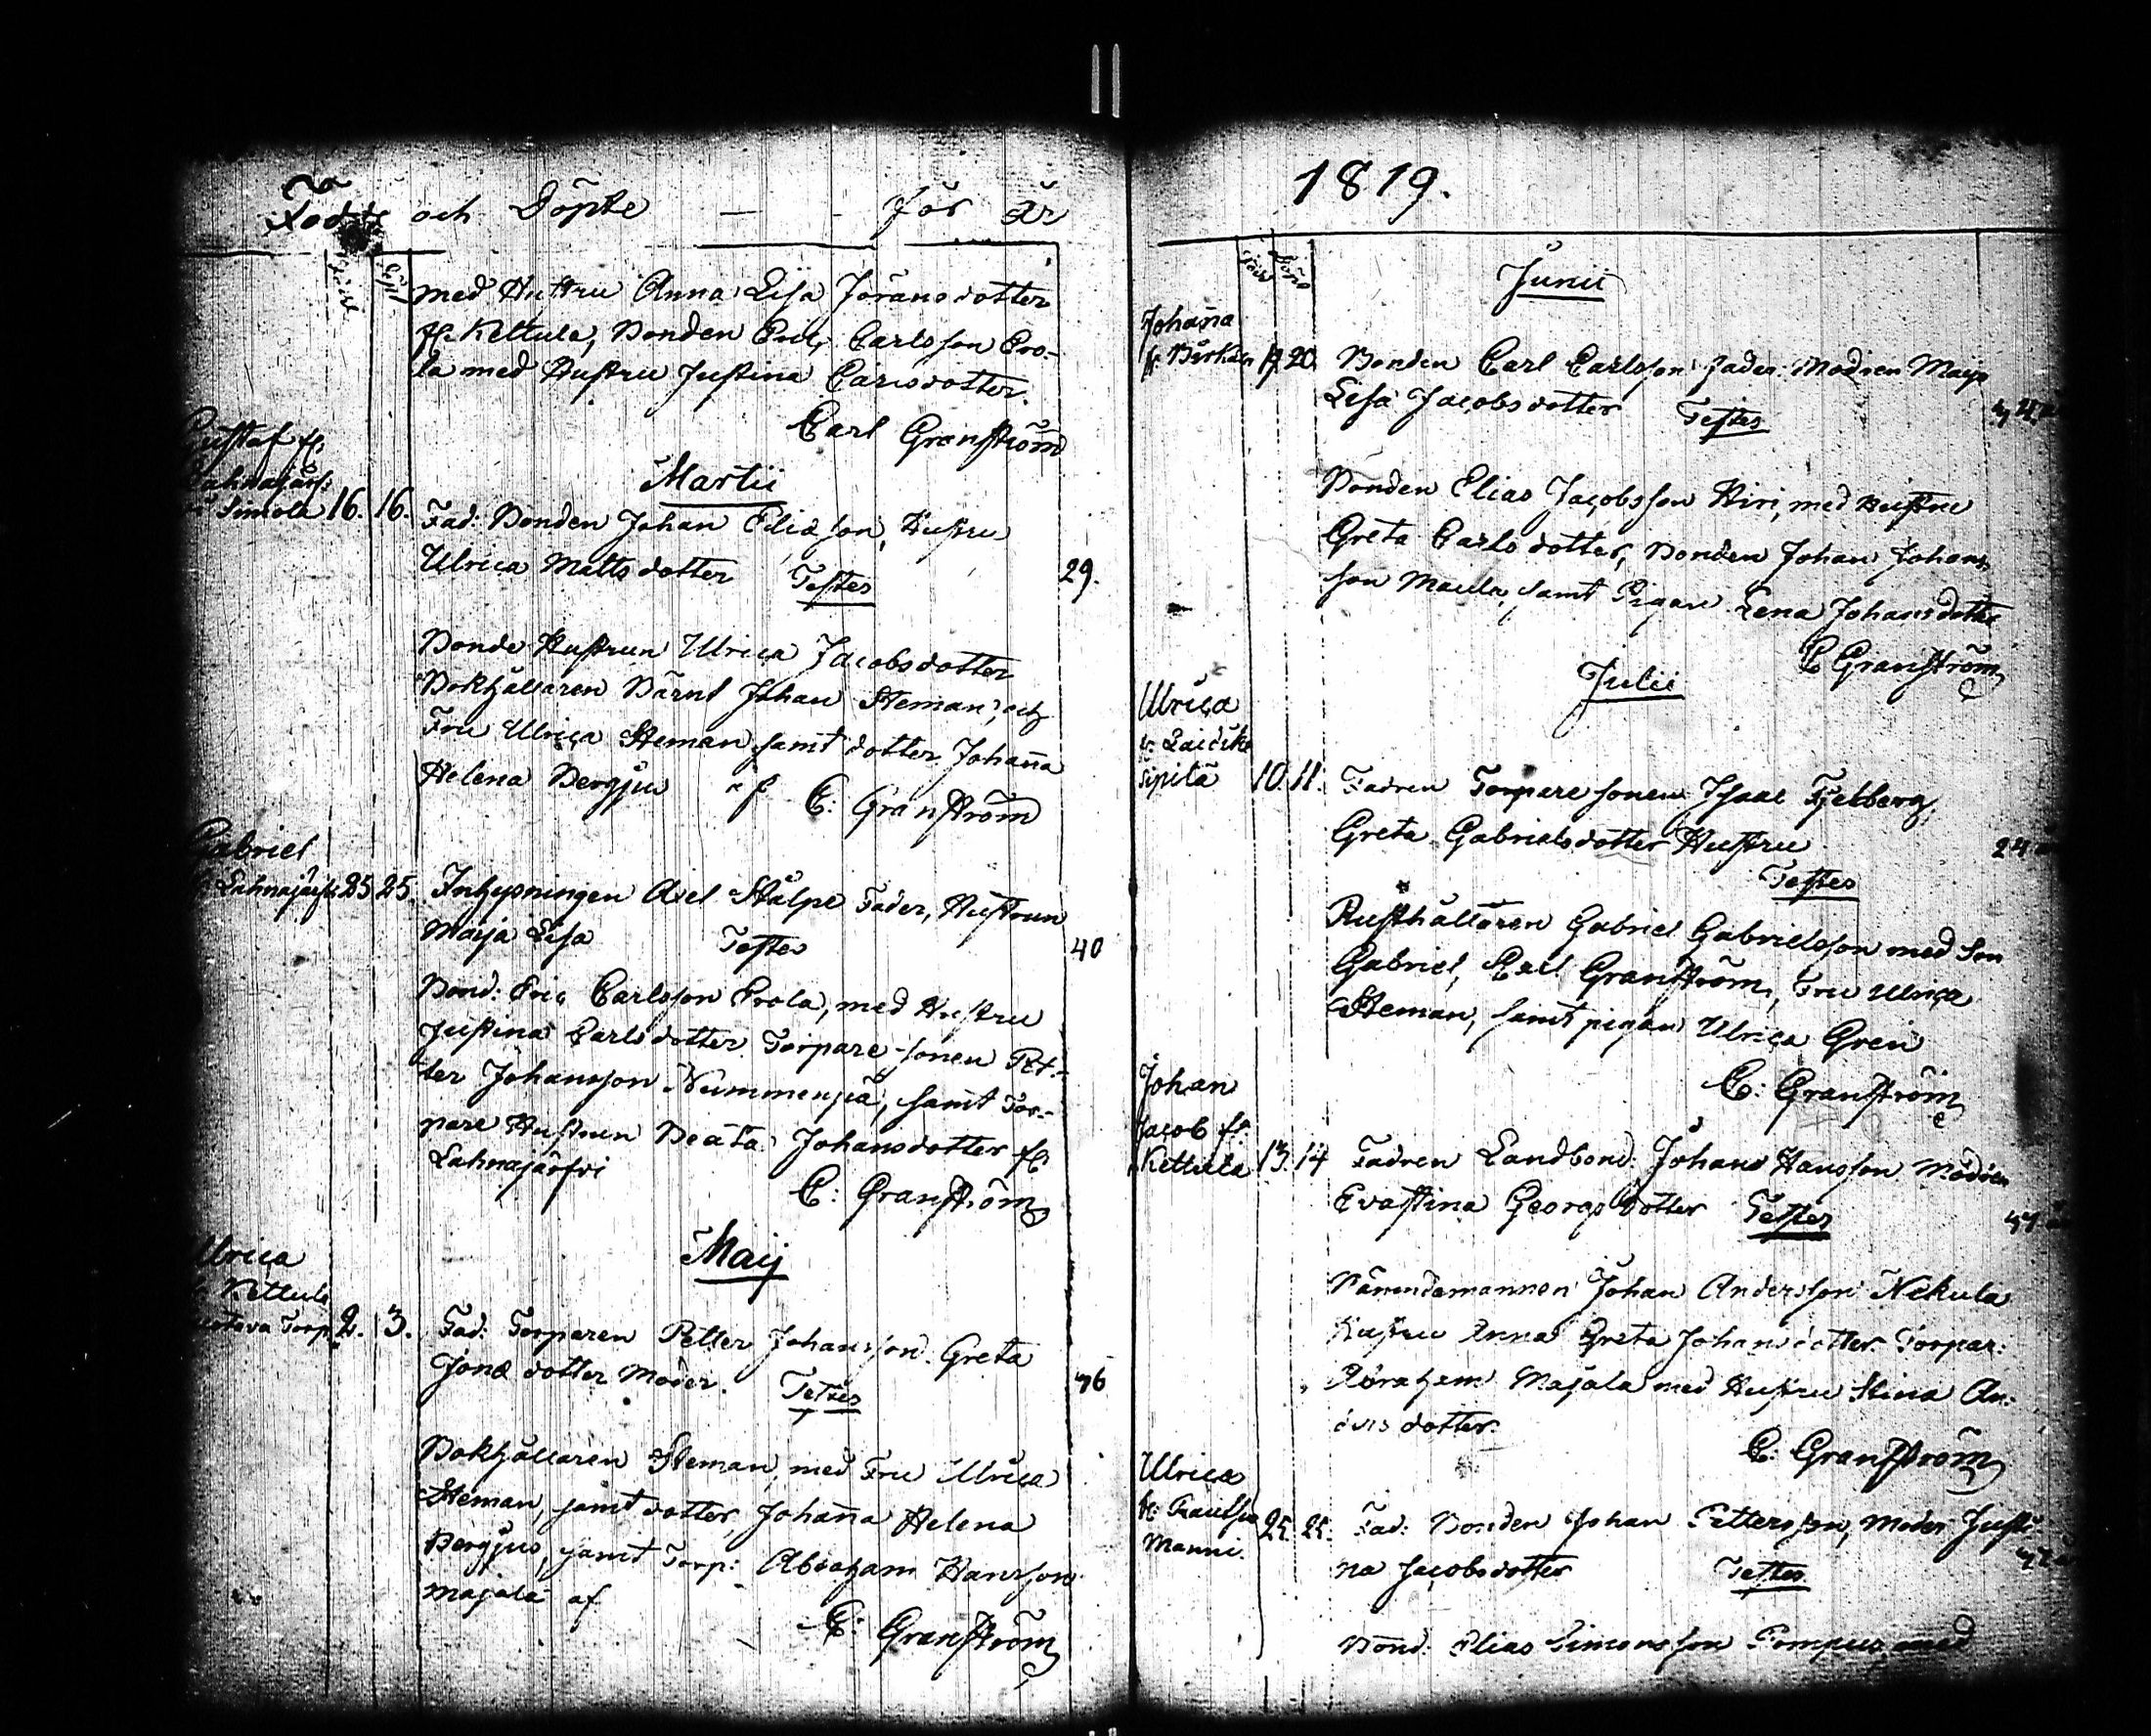 Födde och Döpte — - för år
Född Döpt
med Hustru Anna Lisa Jöransdotter
fr. Kettula, Bonden Eric Carlsson Ero-
la med Hustru Justina Carlsdotter.
Carl Granström
Martii
Gustaf fr.
Lahnajärf:
Simola 16. 16. Fad: Bonden Johan Eliasson, Hustru
Ulrica Mattsdotter Testes 29.
Bonde Hustrun Ulrica Jacobsdotter
Bokhållaren Bärnt Johan Steman, och
Fru Ulrica Steman, samt dotter Johan̄a
Helena Bergjus af C: Granström
Gabriel
Lahnajärfvi 25 25. Inhysningen Axel Stålpe Fader, Hustrun
Maija Lisa Testes 40
Bond: Eric Carlsson Erola, med Hustru
Justina Carlsdotter. Torpare-sonen Pet-
ter Johansson Nummenpä, samt Tor-
pare Hustrun Beata Johansdotter fr.
Lahnajärfvi
C: Granström
Maij
Ulrica
Kettula
Torp 2. 3. Fad: Torparen Petter Johansson. Greta
Jonæ dotter Moder. Testes 46
Bokhållaren Steman, med Fru Ulrica
Steman, samt dotter, Johan̄a Helena
Bergjus, samt Torp: Abraham Hansson
Majala af
C: Granström
1819.
Född Döpt
Junii
Johan̄a
20. Bonden Carl Carlsson Fader. Modren Maija
Lisa Jacobsdotter Testes
Bonden Elias Jacobsson Hiri, med Hustru
Greta Carlsdotter, Bonden Johan Johans
son Maula, samt Pigan Lena Johansdotter
C Granström
Julii
Ulrica
sipilä 10. 11. Fadren Torparesonen Isaac Fjelberg,
Greta Gabrielsdotter Hustru 24
Testes
Rusthållaren Gabriel Gabrielsson med Son
Gabriel, Carl Granström, Fru Ulrica
Steman, samt pigan Ulrica Gren
C: Granström
Johan
Jacob fr.
Kettula 13. 14 Fadren Landbond: Johan Hansson Modren
Evastina Georgsdotter Testes
Nämndemannen Johan Andersson Nekula
Hustru Anna Greta Johansdotter. Torpar:
Abraham Majala med Hustru Stina An-
ders dotter.
C. Granström
Ulrica
Manni. 25. 25. Fad: Bonden Johan Pettersson, Moder Justi
na Jacobsdotter Testes
Bond: Elias Simonsson Pompus med